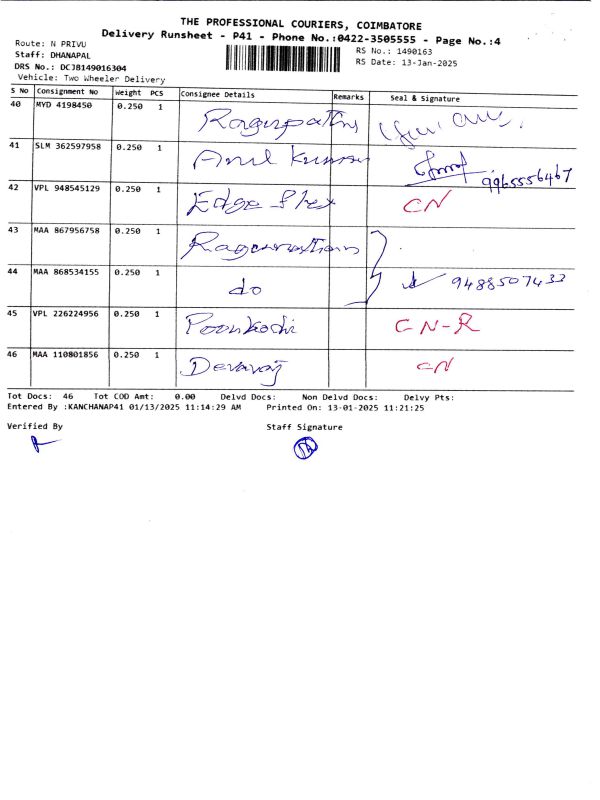 THE PROFESSIONAL COURIERS, COIMBATORE
Delivery Runsheet - P41 - Phone No.:0422-3505555 - Page No.:4
Route: N PRIVU
RS No.: 1490163
Staff: DHANAPAL
RS Date: 13-Jan-2025
DRS No.: DCJ8149016304
Vehicle: Two Wheeler Delivery
S No Consignment No Weight PCS Consignee Details Remarks Seal & Signature
40 MYD 4198450 0.250 1 Ragupathy
41 SLM 362597958 0.250 1 Anil Kumar 9965556467
42 VPL 948545129 0.250 1 Edge Flex CN
43 MAA 867956758 0.250 1
44 MAA 868534155 0.250 1 do 9488507433
45 VPL 226224956 0.250 1 Poonkodi CN-R
46 MAA 110801856 0.250 1 Devaraj CN
Tot Docs: 46 Tot COD Amt: 0.00 Delvd Docs: Non Delvd Docs: Delvy Pts:
Entered By :KANCHANAP41 01/13/2025 11:14:29 AM Printed On: 13-01-2025 11:21:25
Verified By Staff Signature